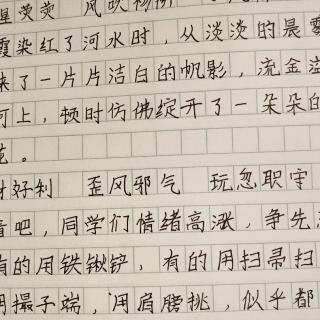 星荧荧 风吹杨柳
霞染红了河水时，从淡淡的晨雾
来了一片片洁白的帆影，流金溢
河上，顿时仿佛绽开了一朵朵的
花。
财好利 歪风邪气 玩忽职守
看吧，同学们情绪高涨，争先
有的用铁锹铲，有的用扫帚扫
用撮子端，用肩膀挑，似乎都